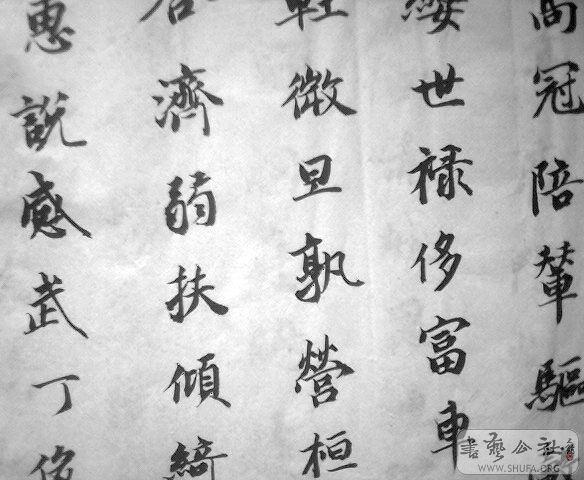 高冠陪輦驅
纓世祿侈富車
輕微旦孰營桓
合濟弱扶傾綺
惠說感武丁
書藝公社
WWW.SHUFA.ORG